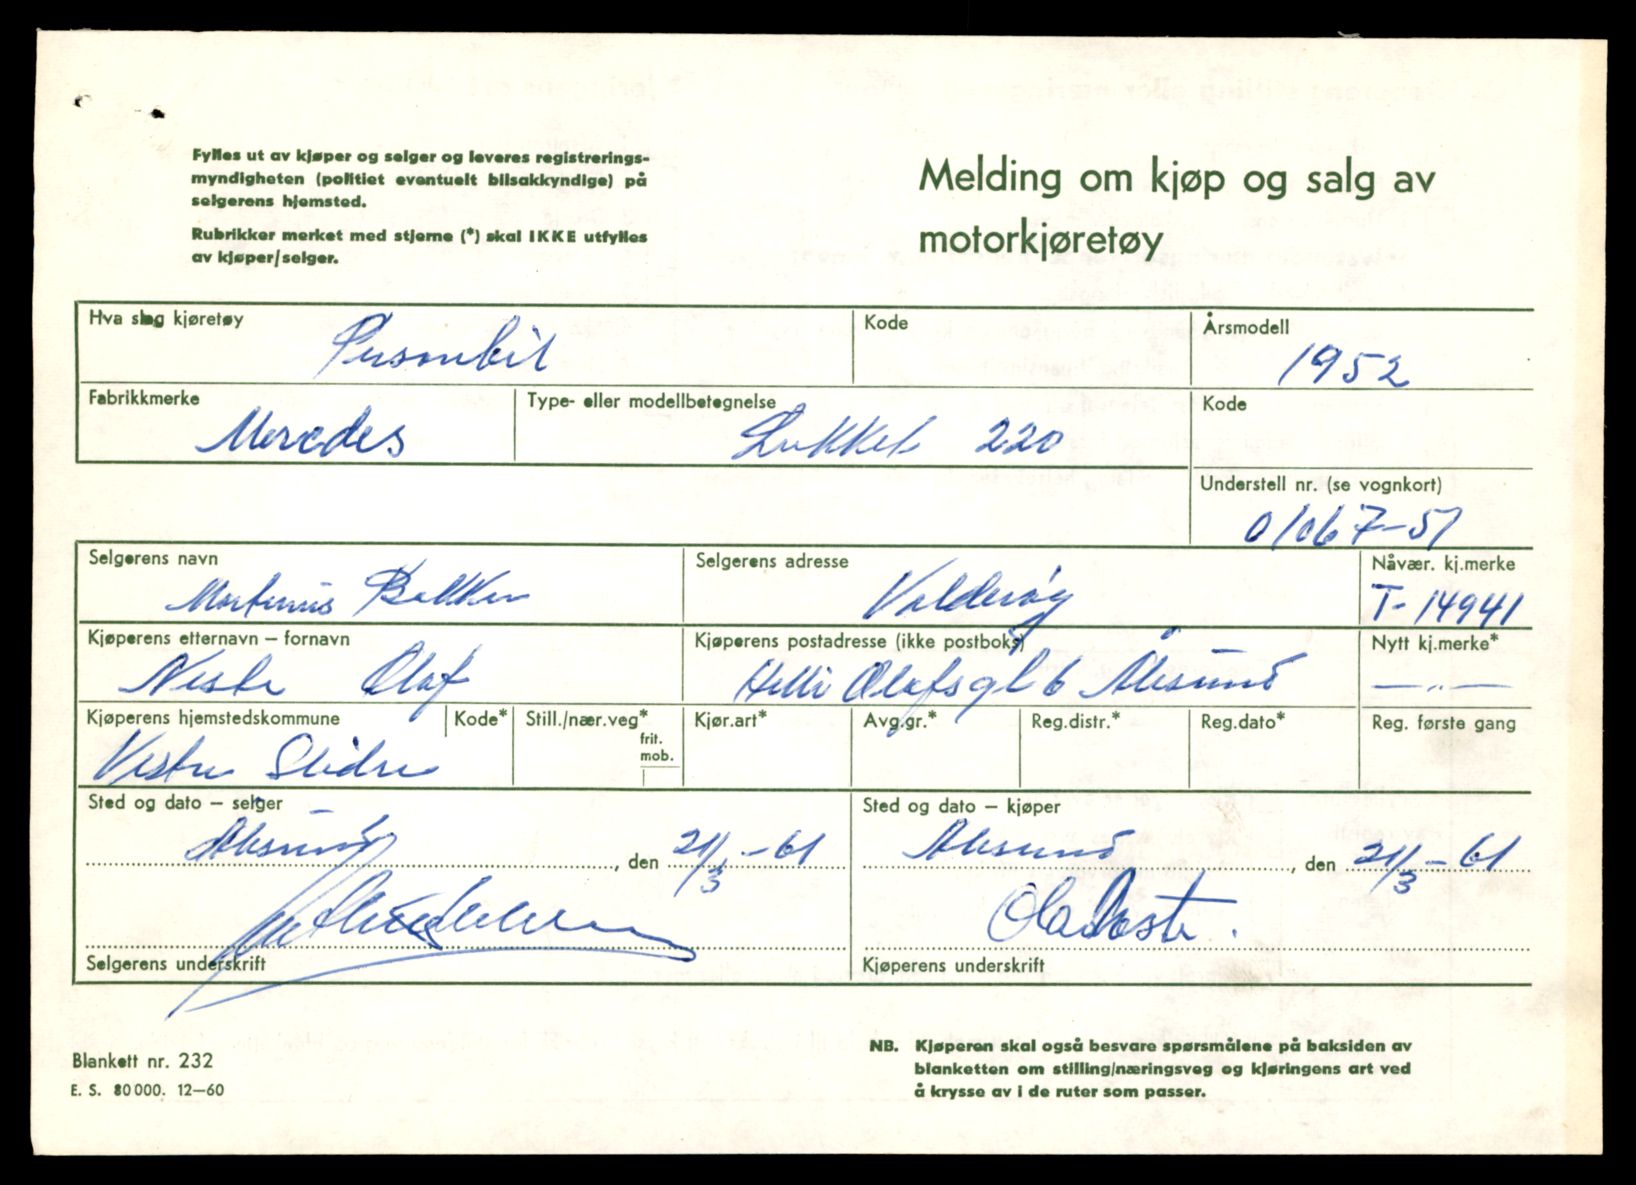 Fylles ut av kjøper og selger og leveres registrerings-
myndigheten (politiet eventuelt bilsakkyndige) på
selgerens hjemsted.
Rubrikker merket med stjerne (*) skal IKKE utfylles
av kjøper/selger.
Melding om kjøp og salg av
motorkjøretøy
Hva slag kjøretøy
Personbil
Kode
Årsmodell
1952
Fabrikkmerke
Mercedes
Type- eller modellbetegnelse
Lukket 220
Kode
Understell nr. (se vognkort)
01067-51
Selgerens navn
Martinus Bakken
Selgerens adresse
Valderøy
Nåvær. kj.merke
T-14941
Kjøperens etternavn – fornavn
Neste Olaf
Kjøperens postadresse (ikke postboks)
Helli Olafsgt 6 Ålesund
Nytt kj.merke*
— „ —
Kjøperens hjemstedskommune
Vestre Slidre
Kode*
Still./nær.veg*
frit.
mob.
Kjør.art*
Avg.gr.*
Reg.distr.*
Reg.dato*
Reg. første gang
Sted og dato – selger
Ålesund, den 21/3 - 61
Selgerens underskrift
Sted og dato – kjøper
Ålesund, den 21/3 - 61
Ola Neste.
Kjøperens underskrift
Blankett nr. 232
E. S. 80 000. 12—60
NB. Kjøperen skal også besvare spørsmålene på baksiden av
blanketten om stilling/næringsveg og kjøringens art ved
å krysse av i de ruter som passer.